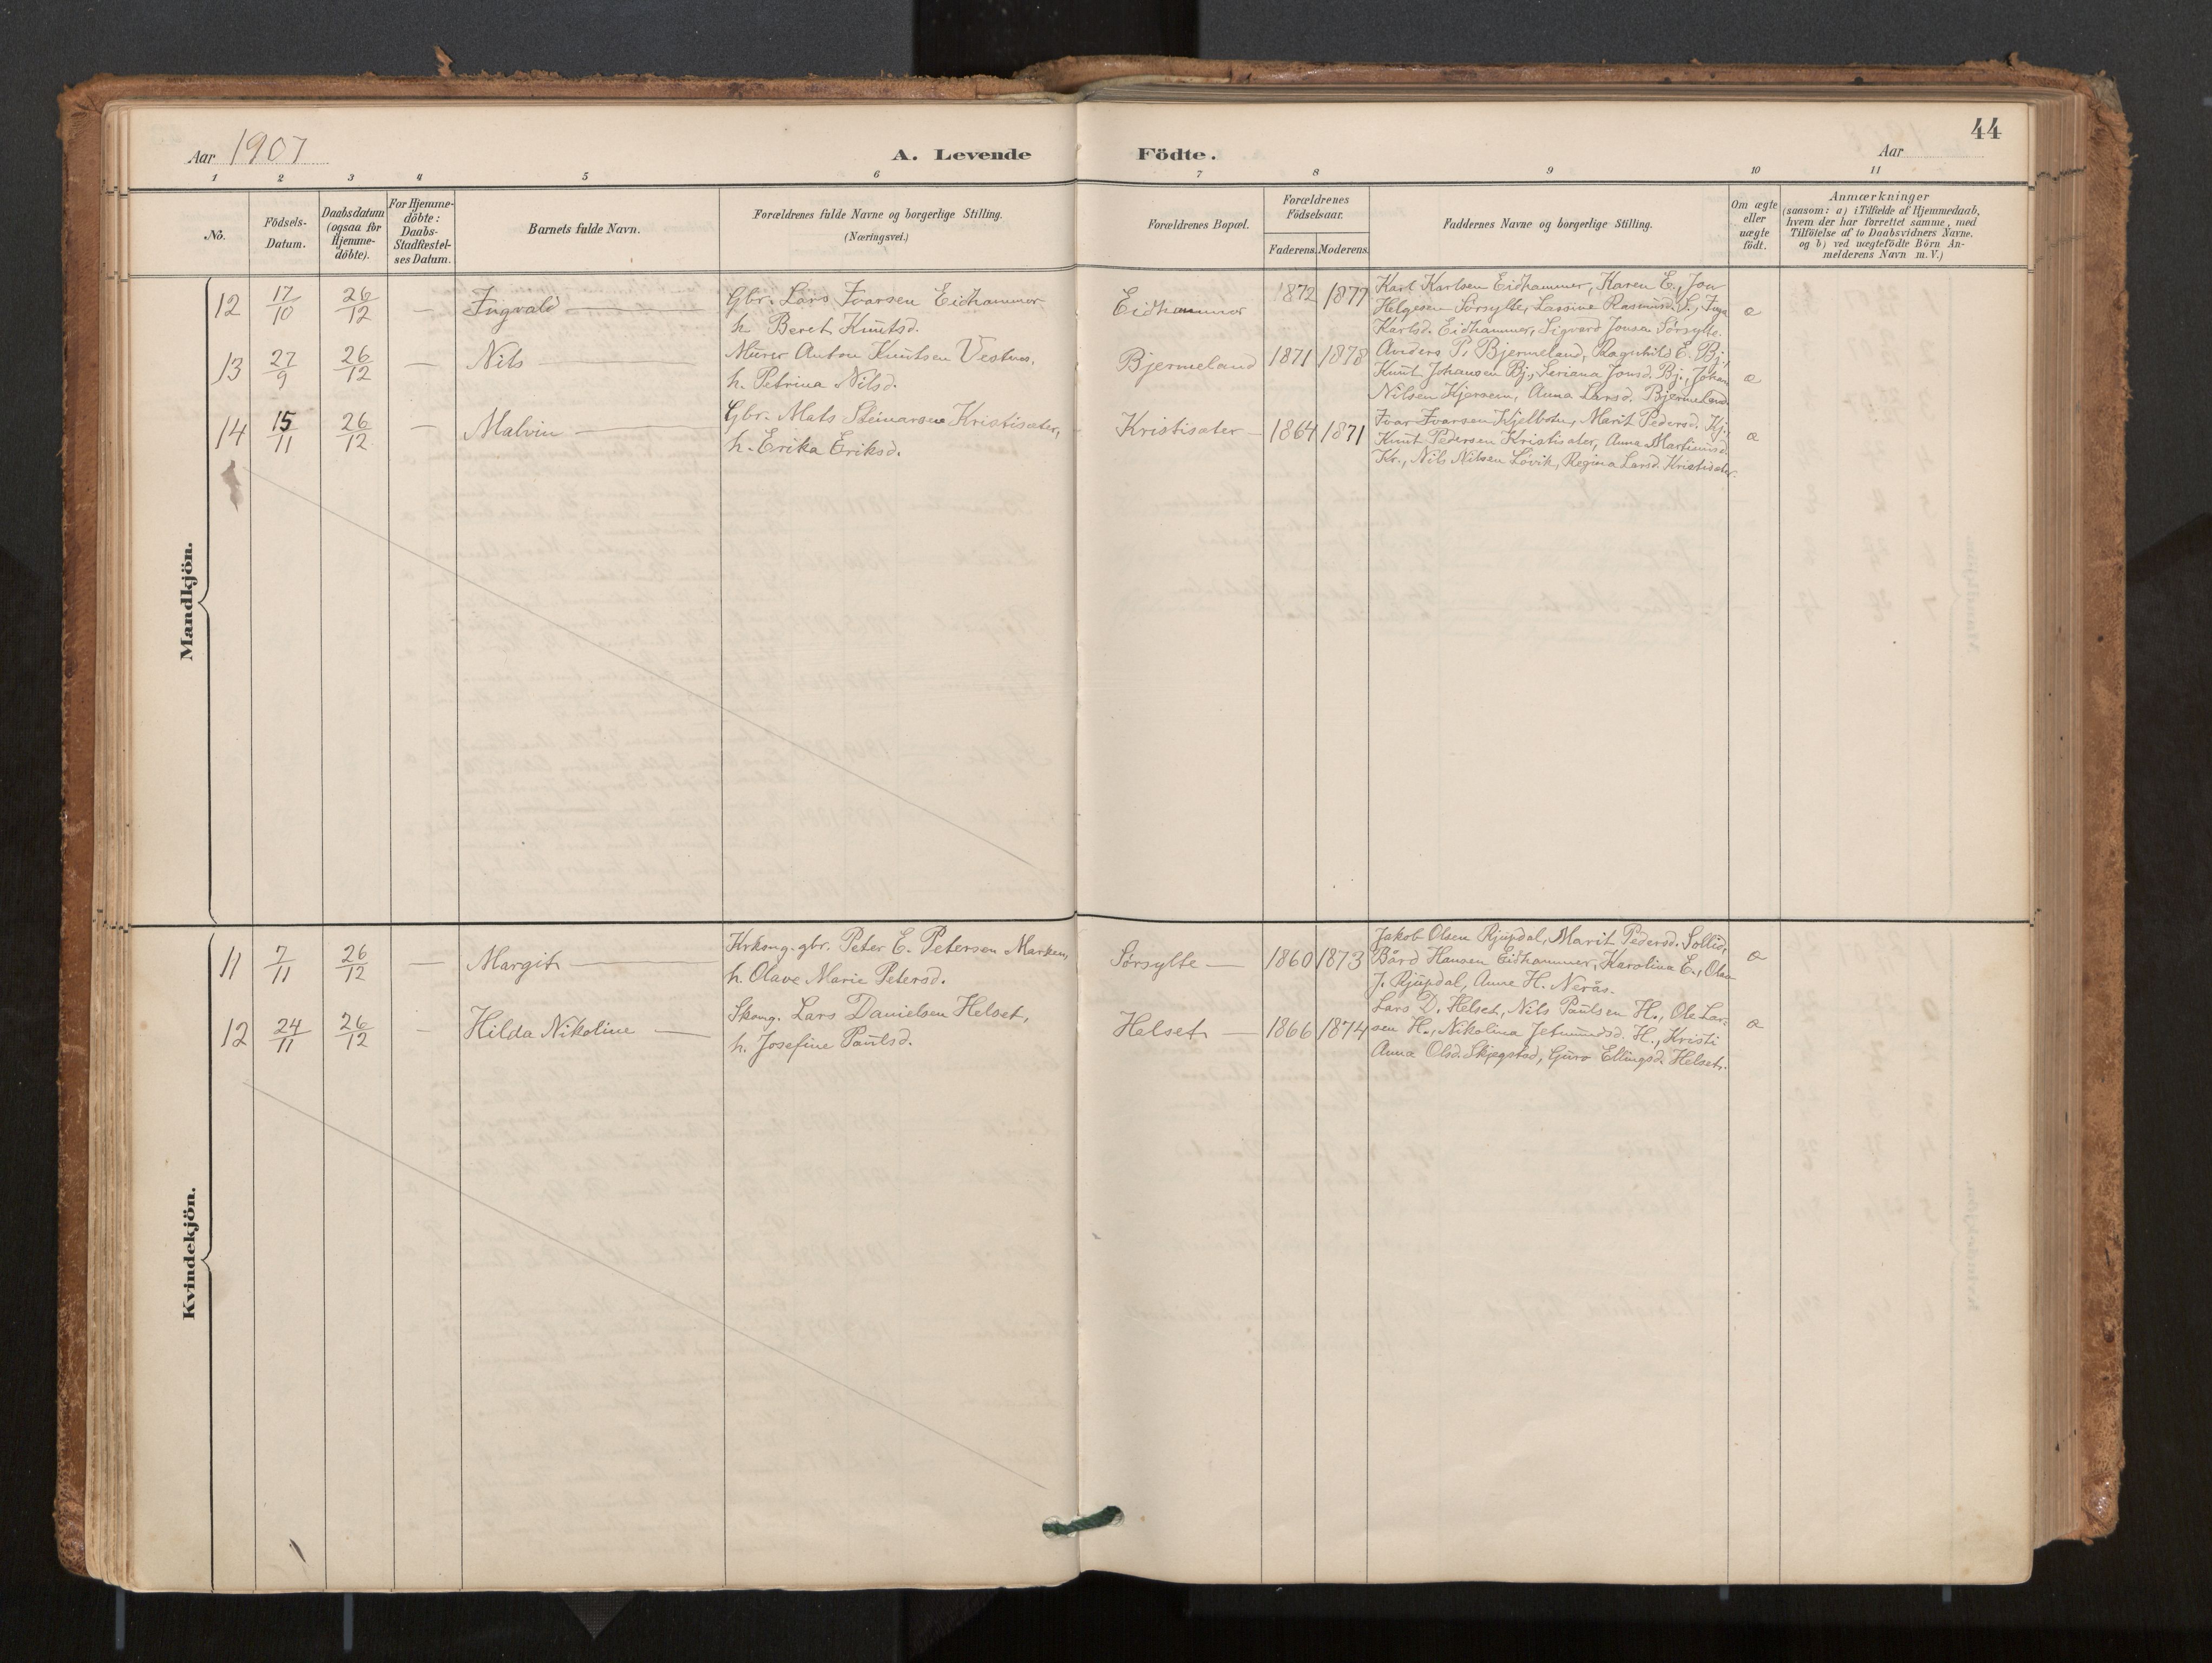 44
Aar 1907
A. Levende Födte.
Aar
1 2 3 4 5 6 7 8 9 10 11
No.
Födsels-
Datum.
Daabsdatum
(ogsaa for
Hjemme-
döbte).
For Hjemme-
döbte:
Daabs-
Stadfæstel-
ses Datum.
Barnets fulde Navn.
Forældrenes fulde Navne og borgerlige Stilling.
(Næringsvei.)
Forældrenes Bopæl.
Forældrenes
Födselsaar.
Faderens. Moderens.
Faddernes Navne og borgerlige Stilling.
Om ægte
eller
uægte
födt.
Anmærkninger
(saasom: a) i Tilfælde af Hjemmedaab,
hvem der har forrettet samme, med
Tilföielse af to Daabsvidners Navne,
og b) ved uægtefödte Börn An-
melderens Navn m. V.)
Mandkjön.
12 17/10 26/12 — Ingvald — Gbr. Lars Ivarsen Eidhammer
h. Beret Knutsd.
Eidhammer 1872 1877
Karl Karlsen Eidhammer, Karen E., Jon
Helgesen Sörsylte, Lassine Rasmusd. S., Inga
Karlsd. Eidhammer, Sigvard Jonsen Sörsylte.
æ
13 27/9 26/12 — Nils — Murer Anton Knutsen Vestnes.
h. Petrina Nilsd.
Bjermeland 1871 1878
Anders P. Bjermeland, Ragnhild E. Bj.,
Knut Johansen Bj., Seriana Jonsd. Bj., Johan
Nilsen Kjersem, Anna Larsd. Bjermeland
æ
14 15/11 26/12 — Malvin — Gbr. Mats Steinarsen Kristisæter,
h. Erika Eriksd.
Kristisæter — 1864 1871
Ivar Ivarsen Kjelbotn, Marit Pedersd. Kj.,
Knut Pedersen Kristisæter, Anna Martinusd.
Kr., Nils Nilsen Lövik, Regina Larsd. Kristisæter.
æ
Kvindekjön.
11 7/11 26/12 — Margit — Krkong. gbr. Peter E. Petersen Marken,
h. Olave Marie Petersd.
Sörsylte — 1860 1873
Jakob Olsen Rjupdal, Marit Pedersd. Sollid,
Bård Hansen Eidhammer, Karolina E., Olav
J. Rjupdal, Anne H. Nerås.
æ
12 24/11 26/12 — Hilda Nikoline — Skomg. Lars Danielsen Helset,
h. Josefine Paulsd.
Helset — 1866 1874
Lars D. Helset, Nils Paulsen H., Ole Lar-
sen H., Nikolina Jetmundsd. H., Kristi
Anna Olsd. Skjegstad, Guro Ellingsd. Helset.
æ